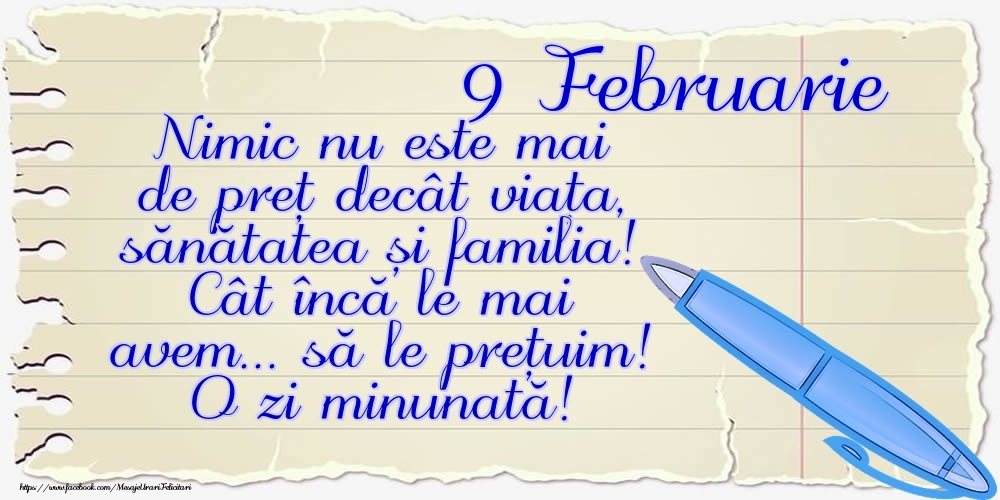 9 Februarie
Nimic nu este mai
de preț decât viața,
sănătatea și familia!
Cât încă le mai
avem... să le prețuim!
O zi minunată!
https://www.facebook.com/MesajeUrariFelicitari